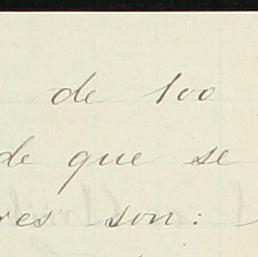 de 100
de que se
res son: